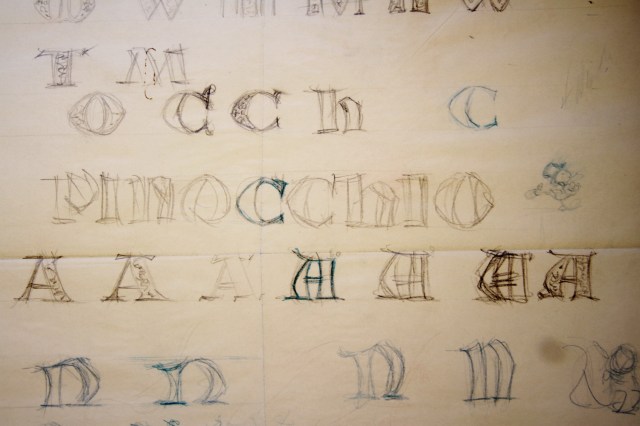 T M
O C C h C
PINOCChIO
A A A A A A A
n n n m